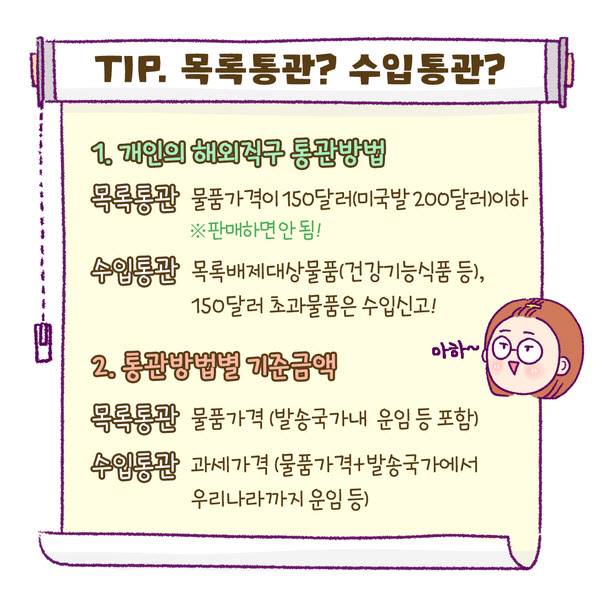 TIP. 목록통관? 수입통관?
1. 개인의 해외직구 통관방법
목록통관 물품가격이 150달러(미국발 200달러)이하
※판매하면 안 됨!
수입통관 목록배제대상물품(건강기능식품 등),
150달러 초과물품은 수입신고!
아하~
2. 통관방법별 기준금액
목록통관 물품가격 (발송국가내 운임 등 포함)
수입통관 과세가격 (물품가격+발송국가에서
우리나라까지 운임 등)